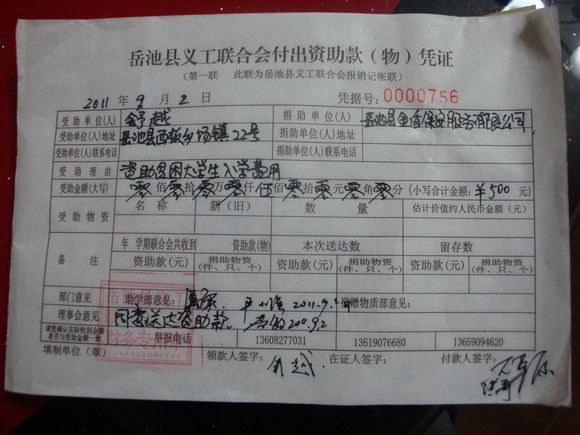 岳池县义工联合会付出资助款（物）凭证
（第一联 此联为岳池县义工联合会报销记帐联）
2011 年 9 月 2 日 凭据号: 0000756
受助单位(人) 越 捐助单位(人) 岳池县金盾保安服务有限公司
受助单位(人)地址 岳池县西板乡场镇22号 捐助单位(人)地址
受助单位(人)联系电话 捐助单位(人)联系电话
受助理由 资助贫困大学生入学费用
受助金额(大写) 零佰零拾零万零仟伍佰零拾零元零角零分 (小写合计金额: ¥500 元)
受助物资 名称 新(旧) 数量 质量 估计价值约人民币金额(元)
备注 年 学期联合会共收到 资助款(物) 本次送达数 留存数
资助款(元) 捐助物资(件、只、个) 资助款(元) 捐助物资(件、只、个) 资助款(元) 捐助物资(件、只、个)
部门意见 助学部意见: 2011.9. 捐赠物质部意见:
理事会意见 同意送达资助款. 2011.9.2
请您确认实际收到金额是否与受助金额一致 举报电话 13608277031 13619076680 13659094620
填制单位(章) 领款人签字: 越 在证人签字: 付款人签字: